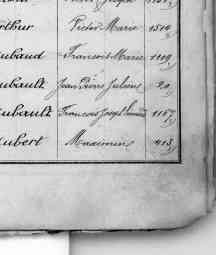 Joseph
rthur Victor Marie 1514
ubaud François Marie 1109
ubault Jean Pierre Julien 20
ubault François Joseph 1157
ubert Maximin 413